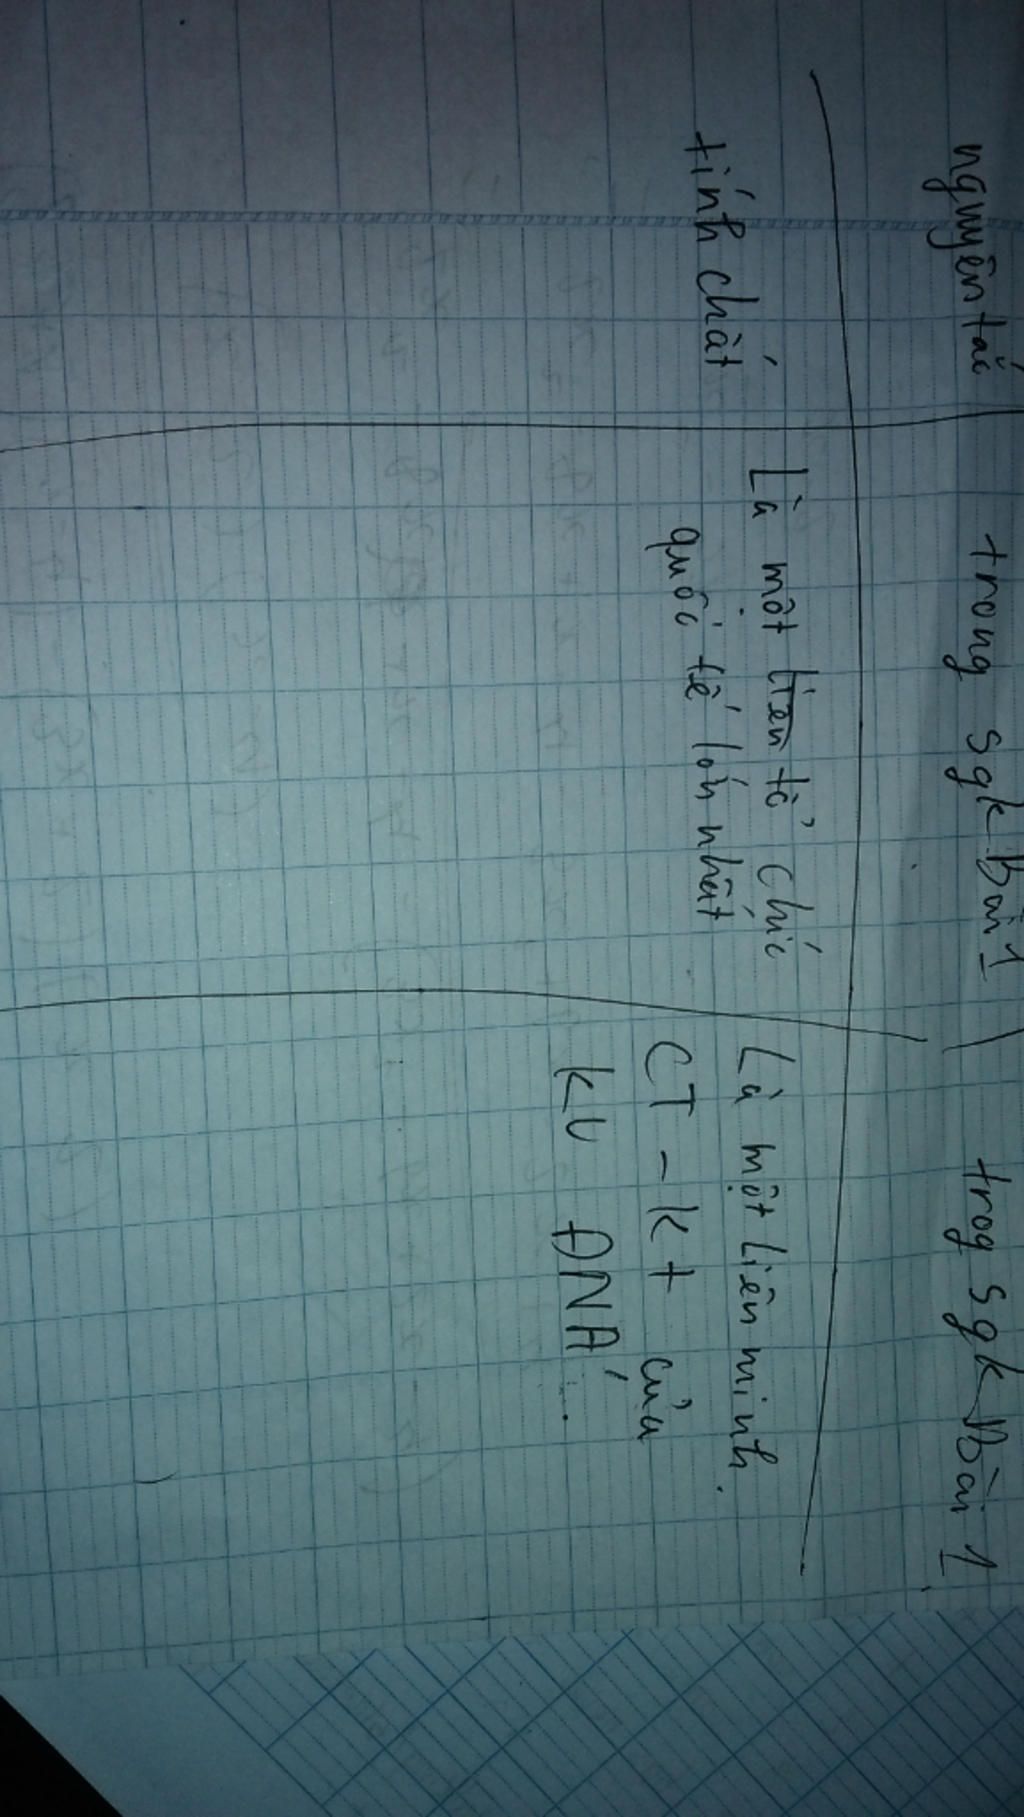 nguyên tắc
trong sgk Bài 1
trog sgk Bài 1
tính chất
Là một liên tổ chức
quốc tế lớn nhất
Là một liên minh
CT - kt của
KV ĐNÁ...